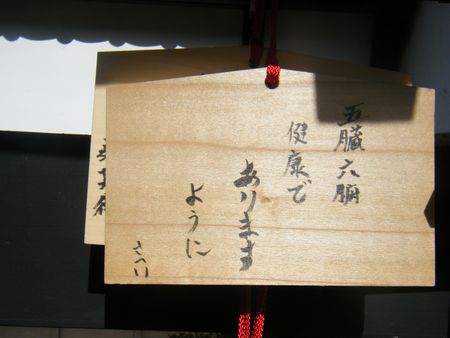 五臓六腑
健康で
あります
ように